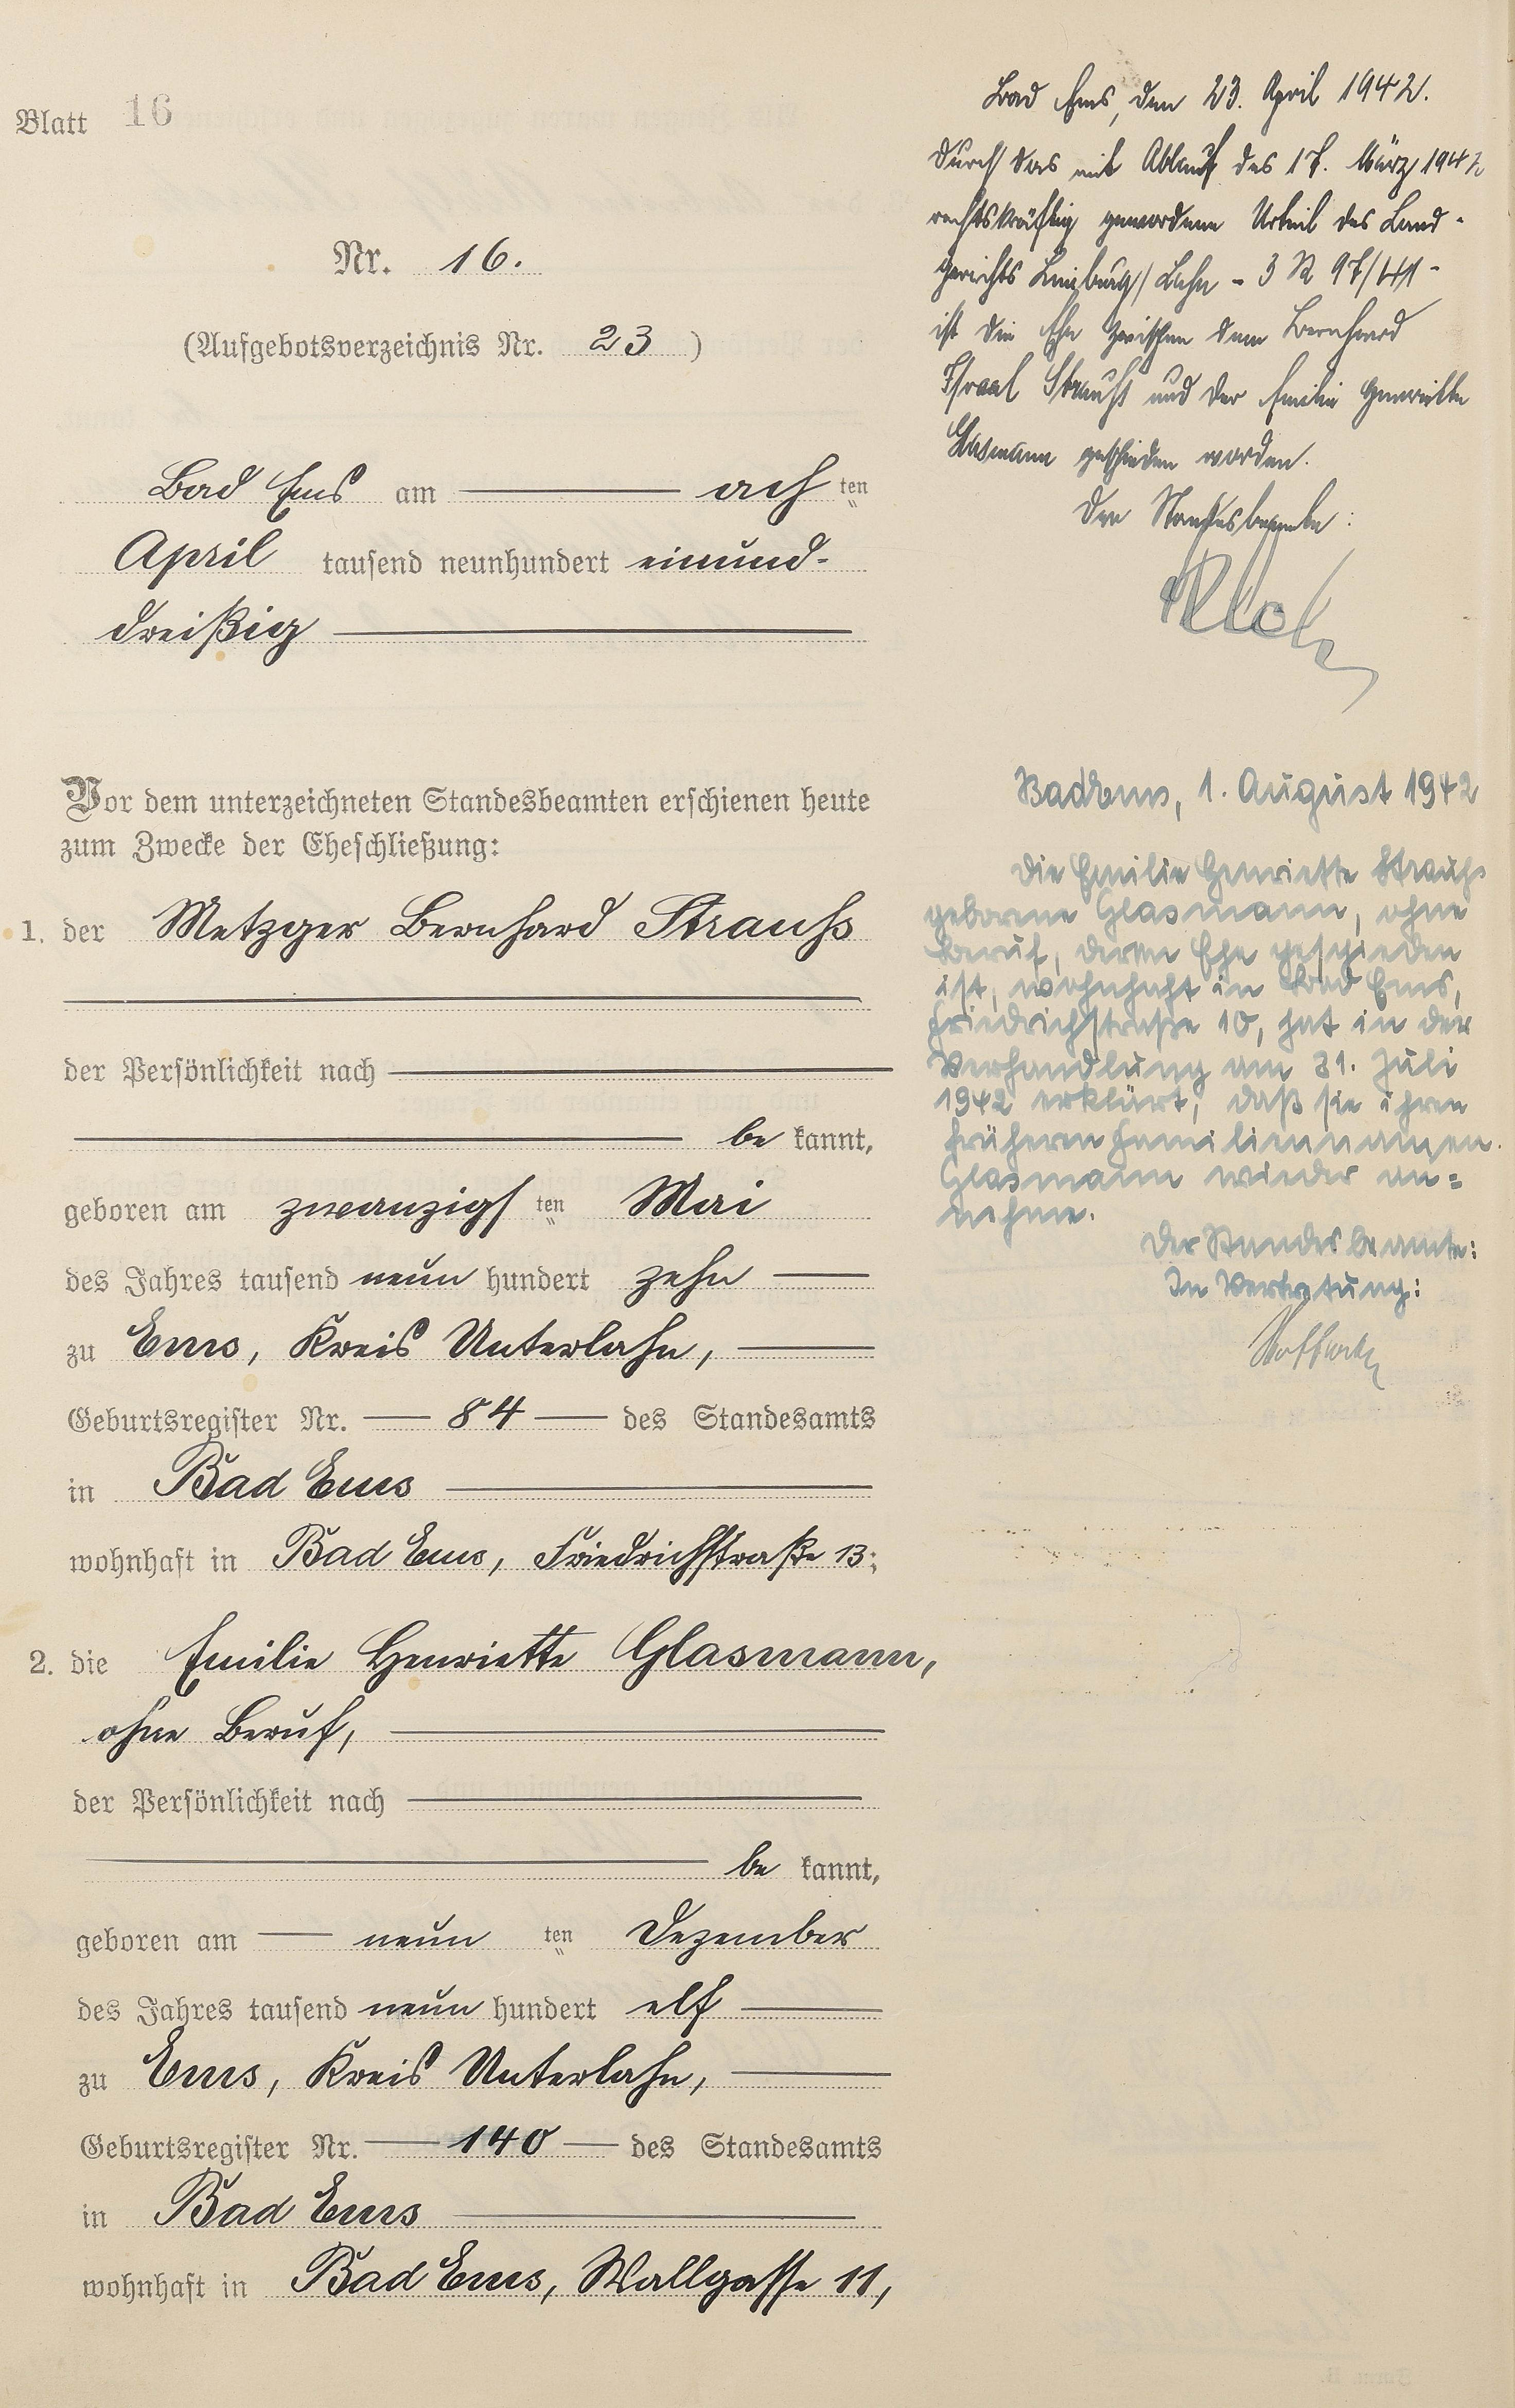 Blatt 16
Nr. 16.
(Aufgebotsverzeichnis Nr. 23 )
Bad Ems am ach ten
April tausend neunhundert einund-
dreißig
Vor dem unterzeichneten Standesbeamten erschienen heute
zum Zwecke der Eheschließung:
1. der Metzger Bernhard Strauß
der Persönlichkeit nach
be kannt,
geboren am zwanzigs ten Mai
des Jahres tausend neun hundert zehn
zu Ems, Kreis Unterlahn,
Geburtsregister Nr. 84 des Standesamts
in Bad Ems
wohnhaft in Bad Ems, Friedrichstraße 13;
2. die Emilie Henriette Glasmann,
ohne Beruf,
der Persönlichkeit nach
be kannt,
geboren am neun ten Dezember
des Jahres tausend neun hundert elf
zu Ems, Kreis Unterlahn,
Geburtsregister Nr. 140 des Standesamts
in Bad Ems
wohnhaft in Bad Ems, Wallgasse 11,
Bad Ems, den 23. April 1942.
Durch das mit Ablauf des 17. März 1942
rechtskräftig gewordene Urteil des Land-
gerichts Limburg/Lahn - 3 R 97/41 -
ist die Ehe zwischen dem Bernhard
Israel Strauß und der Emilie Henriette
Glasmann geschieden worden.
Der Standesbeamte:
Bad Ems, 1. August 1942
Die Emilie Henriette Strauß
geborene Glasmann, ohne
Beruf, deren Ehe geschieden
ist, wohnhaft in Bad Ems,
Friedrichstraße 10, hat in der
Verhandlung am 31. Juli
1942 erklärt, daß sie ihren
früheren Familiennamen
Glasmann wieder an=
nehme.
Der Standesbeamte:
In Vertretung: